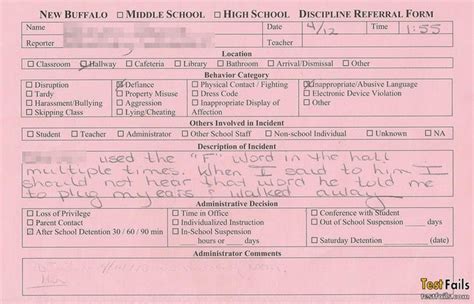 NEW BUFFALO □ MIDDLE SCHOOL □ HIGH SCHOOL DISCIPLINE REFERRAL FORM
Name Date 4/12 Time 1:55
Reporter Teacher
Location
□ Classroom ☑ Hallway □ Cafeteria □ Library □ Bathroom □ Arrival/Dismissal □ Other
Behavior Category
□ Disruption ☑ Defiance □ Physical Contact / Fighting ☑ Inappropriate/Abusive Language
□ Tardy □ Property Misuse □ Dress Code □ Electronic Device Violation
□ Harassment/Bullying □ Aggression □ Inappropriate Display of Affection □ Other
□ Skipping Class □ Lying/Cheating
Others Involved in Incident
□ Student □ Teacher □ Administrator □ Other School Staff □ Non-school Individual □ Unknown □ NA
Description of Incident
used the "F" word in the hall
multiple times. When I said to him I
should not hear that word he told me
to plug my ears & walked away.
Administrative Decision
□ Loss of Privilege □ Time in Office □ Conference with Student
□ Parent Contact □ Individualized Instruction □ Out of School Suspension ___ days
□ After School Detention 30 / 60 / 90 min □ In-School Suspension ___ hours or ___ days □ Saturday Detention (date)
Administrator Comments
TestFails
testfails.com